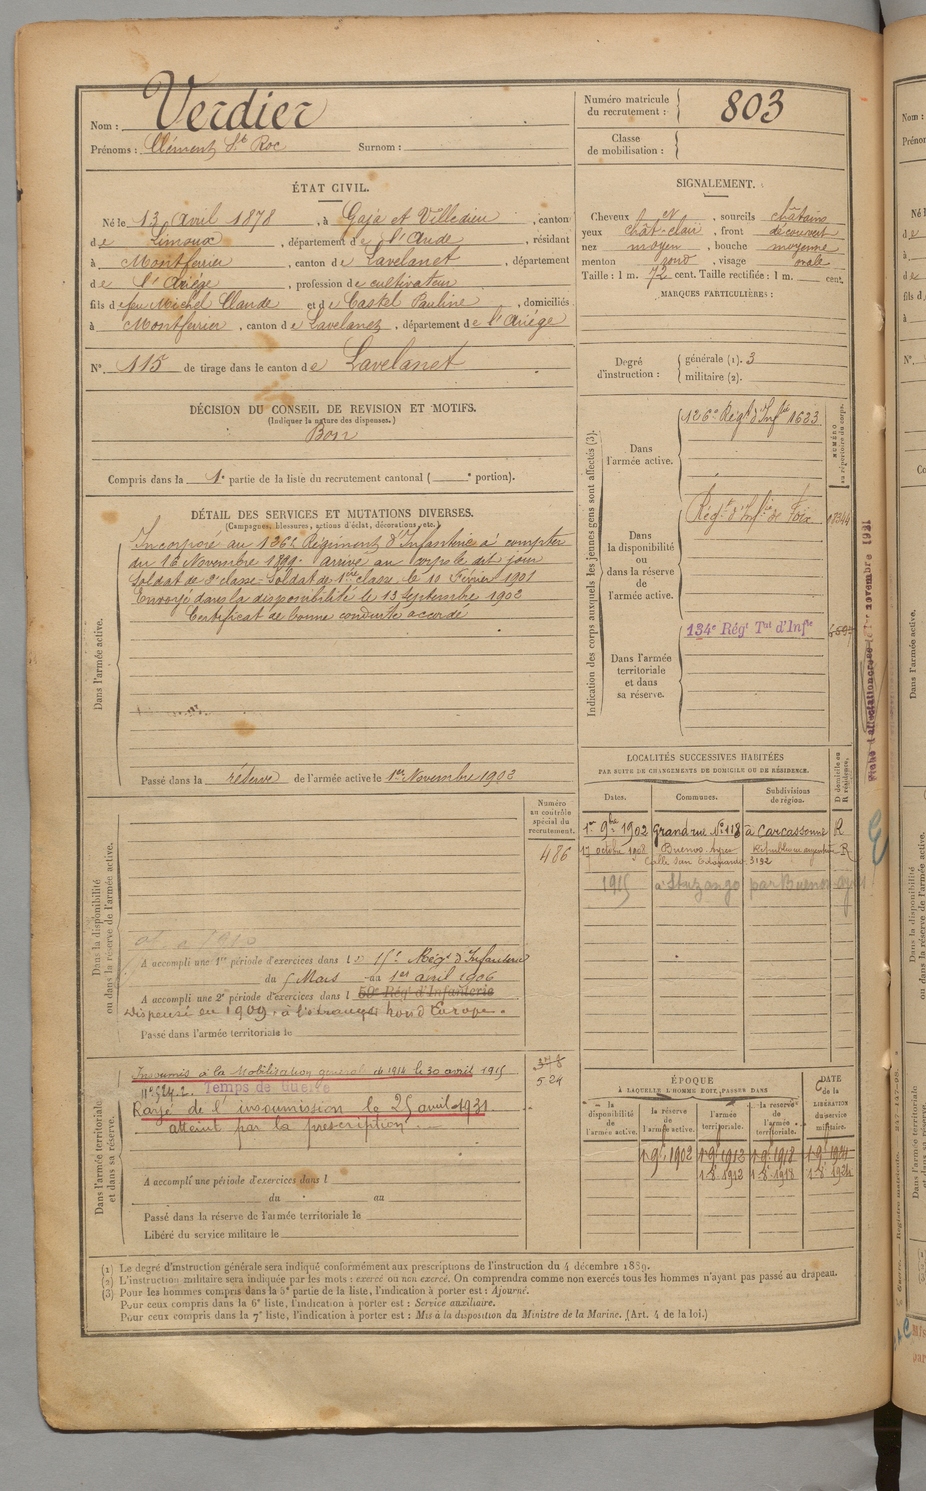 Nom : Verdier
Prénoms : Clément St Roc Surnom :
Numéro matricule du recrutement : 803
Classe de mobilisation :
ÉTAT CIVIL.
Né le 13 Avril 1878, à Gaja et Villedieu, canton
de Limoux, département de l'Aude, résidant
à Montferrier, canton de Lavelanet, département
de l'Ariége, profession de cultivateur
fils de feu Michel Claude et de Castel Pauline, domiciliés
à Montferrier, canton de Lavelanet, département de l'Ariége
N°. 115 de tirage dans le canton de Lavelanet
SIGNALEMENT.
Cheveux et, sourcils châtains
yeux chât-clair, front découvert
nez moyen, bouche moyenne
menton rond, visage ovale
Taille : 1 m. 72 cent. Taille rectifiée : 1 m. cent.
MARQUES PARTICULIÈRES :
Degré d'instruction : générale (1). 3
militaire (2).
DÉCISION DU CONSEIL DE REVISION ET MOTIFS.
(Indiquer la nature des dispenses.)
Bon
Compris dans la 1e partie de la liste du recrutement cantonal ( e portion).
DÉTAIL DES SERVICES ET MUTATIONS DIVERSES.
(Campagnes, blessures, actions d'éclat, décorations, etc.)
Dans l'armée active.
Incorporé au 126e Régiment d'Infanterie à compter
du 16 Novembre 1899. arrivé au corps le dit jour
Soldat de 2e classe. Soldat de 1ère classe le 10 Février 1901
Envoyé dans la disponibilité le 13 Septembre 1902
Certificat de bonne conduite accordé
Passé dans la réserve de l'armée active le 1er Novembre 1902
Indication des corps auxquels les jeunes gens sont affectés (3).
NUMÉRO au répertoire du corps.
Dans l'armée active. 126e Régt d'Infie 1633
Dans la disponibilité ou dans la réserve de l'armée active. Régt d'Infie de Foix
Dans l'armée territoriale et dans sa réserve. 134e Régt Tal d'Infie
novembre 1931
LOCALITÉS SUCCESSIVES HABITÉES
PAR SUITE DE CHANGEMENTS DE DOMICILE OU DE RÉSIDENCE.
Dates. Communes. Subdivisions de région. D domicile ou R résidence.
1er 9bre 1902 Grand rue N° 118 à Carcassonne R
17 octobre 1908 Buenos-Ayres République argentine R
Calle San Eduardo 3192
1915 à Ituzango par Buenos-Ayres
Numéro au contrôle spécial du recrutement.
486
Dans la disponibilité ou dans la réserve de l'armée active.
A accompli une 1re période d'exercices dans le 15e Régt d'Infanterie
du 5 Mars au 1er avril 1906
A accompli une 2e période d'exercices dans l 59e Régt d'Infanterie
Dispensé en 1909, à l'étranger hors d'Europe.
Passé dans l'armée territoriale le
Dans l'armée territoriale et dans sa réserve.
Insoumis à la Mobilisation générale de 1914 le 30 avril 1915
Temps de Guerre
524
Rayé de l'insoumission le 25 avril 1931
atteint par la prescription
A accompli une période d'exercices dans l
du au
Passé dans la réserve de l'armée territoriale le
Libéré du service militaire le
ÉPOQUE
À LAQUELLE L'HOMME DOIT PASSER DANS
la disponibilité de l'armée active. la réserve de l'armée active. l'armée territoriale. la réserve de l'armée territoriale. DATE de la LIBÉRATION du service militaire.
1er 9e 1902 1er 9e 1912 1er 9e 1918 1er 9e 1924
1er 8e 1912 1er 8e 1918 1er 8e 1924
(1) Le degré d'instruction générale sera indiqué conformément aux prescriptions de l'instruction du 4 décembre 1889.
(2) L'instruction militaire sera indiquée par les mots : exercé ou non exercé. On comprendra comme non exercés tous les hommes n'ayant pas passé au drapeau.
(3) Pour les hommes compris dans la 5e partie de la liste, l'indication à porter est : Ajourné.
Pour ceux compris dans la 6e liste, l'indication à porter est : Service auxiliaire.
Pour ceux compris dans la 7e liste, l'indication à porter est : Mis à la disposition du Ministre de la Marine. (Art. 4 de la loi.)